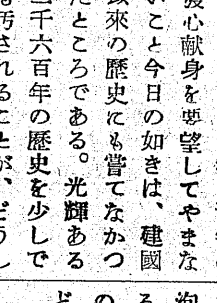 心献身を要望してやまな
いこと今日の如きは、建國
以來の歴史にも嘗てなかつ
たところである。光輝ある
二千六百年の歴史を少しで
汚されることが、どうし